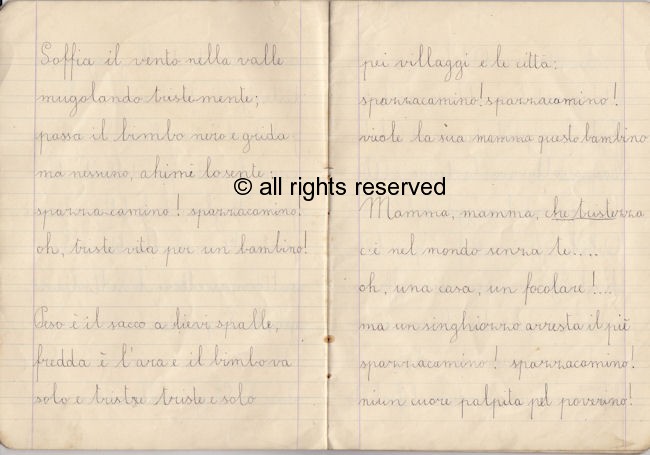 Soffia il vento nella valle
mugolando tristemente;
passa il bimbo nero e grida
ma nessuno, ahimè lo sente:
© all rights reserved
spazzacamino! spazzacamino!
oh, triste vita per un bambino!
Peso è il sacco a lievi spalle,
fredda è l'ara e il bimbo va
solo e tristze triste e solo
pei villaggi e le città:
spazzacamino! spazzacamino!
vuole la sua mamma questo bambino
Mamma, mamma, che tristezza
c'è nel mondo senza te....
oh, una casa, un focolare!...
ma un singhiozzo arresta il piè
spazzacamino! spazzacamino!
niun cuore palpita pel poverino!